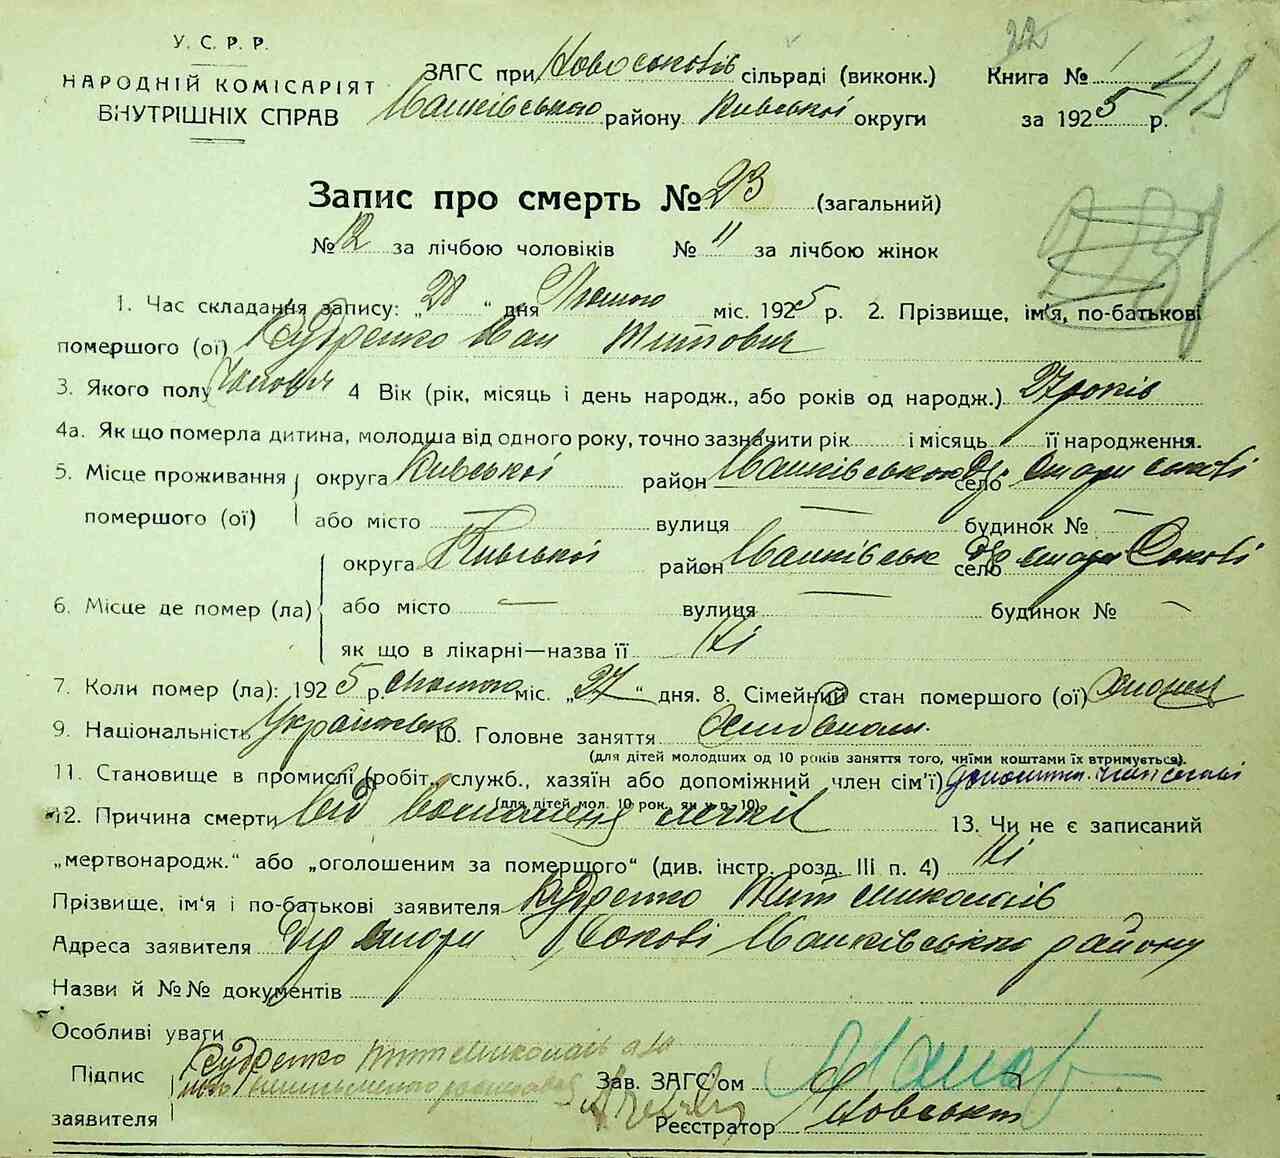 У. С. Р. Р.
НАРОДНІЙ КОМІСАРІЯТ
ВНУТРІШНІХ СПРАВ
22
ЗАГС при Новосоковів сільраді (виконк.) Книга № 1 48
Іванківського району Київської округи за 1925 р.
Запис про смерть № 23 (загальний)
№ 12 за лічбою чоловіків № 11 за лічбою жінок
1. Час складання запису: „28“ дня Лютого міс. 1925 р. 2. Прізвище, ім'я, по-батькові
помершого (ої) Кудренко Іван Титович
3. Якого полу Чоловіч 4 Вік (рік, місяць і день народж., або років од народж.) 27 років
4а. Як що померла дитина, молодша від одного року, точно зазначити рік і місяць її народження.
5. Місце проживання округа Київської район Іванківського село Др. Стари Сокові
помершого (ої) або місто — вулиця — будинок № —
округа Київської район Іванківськ село Др Стари Сокові
6. Місце де помер (ла) або місто — вулиця — будинок № —
як що в лікарні—назва її Ні
7. Коли помер (ла): 1925 р. Лютого міс. „27“ дня. 8. Сімейний стан помершого (ої)
9. Національність Українська 10. Головне заняття
(для дітей молодших од 10 років заняття того, чиїми коштами їх втримується).
11. Становище в промислі (робіт., служб., хазяїн або допоміжний член сім'ї)
(для дітей мол. 10 рок. як у п. 10).
12. Причина смерти Від легкіх 13. Чи не є записаний
„мертвонародж.“ або „оголошеним за помершого“ (див. інстр. розд. III п. 4) Ні
Прізвище, ім'я і по-батькові заявителя Кудренко Тит
Адреса заявителя Др Стари Сокові Іванківського району
Назви й №№ документів
Особливі уваги
Підпис Кудренко Тит
заявителя
Зав. ЗАГС'ом
Реєстратор